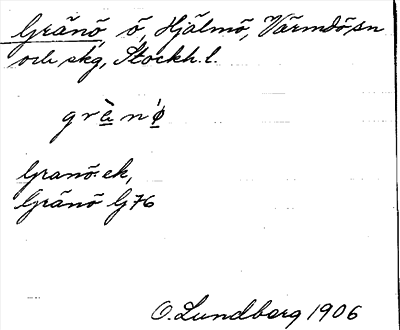 Gränö ö, Hjälmö, Värmdö sn
och skg, Stockh. l.
grὲnö́
Granö. ek,
Gränö G76
O. Lundberg 1906